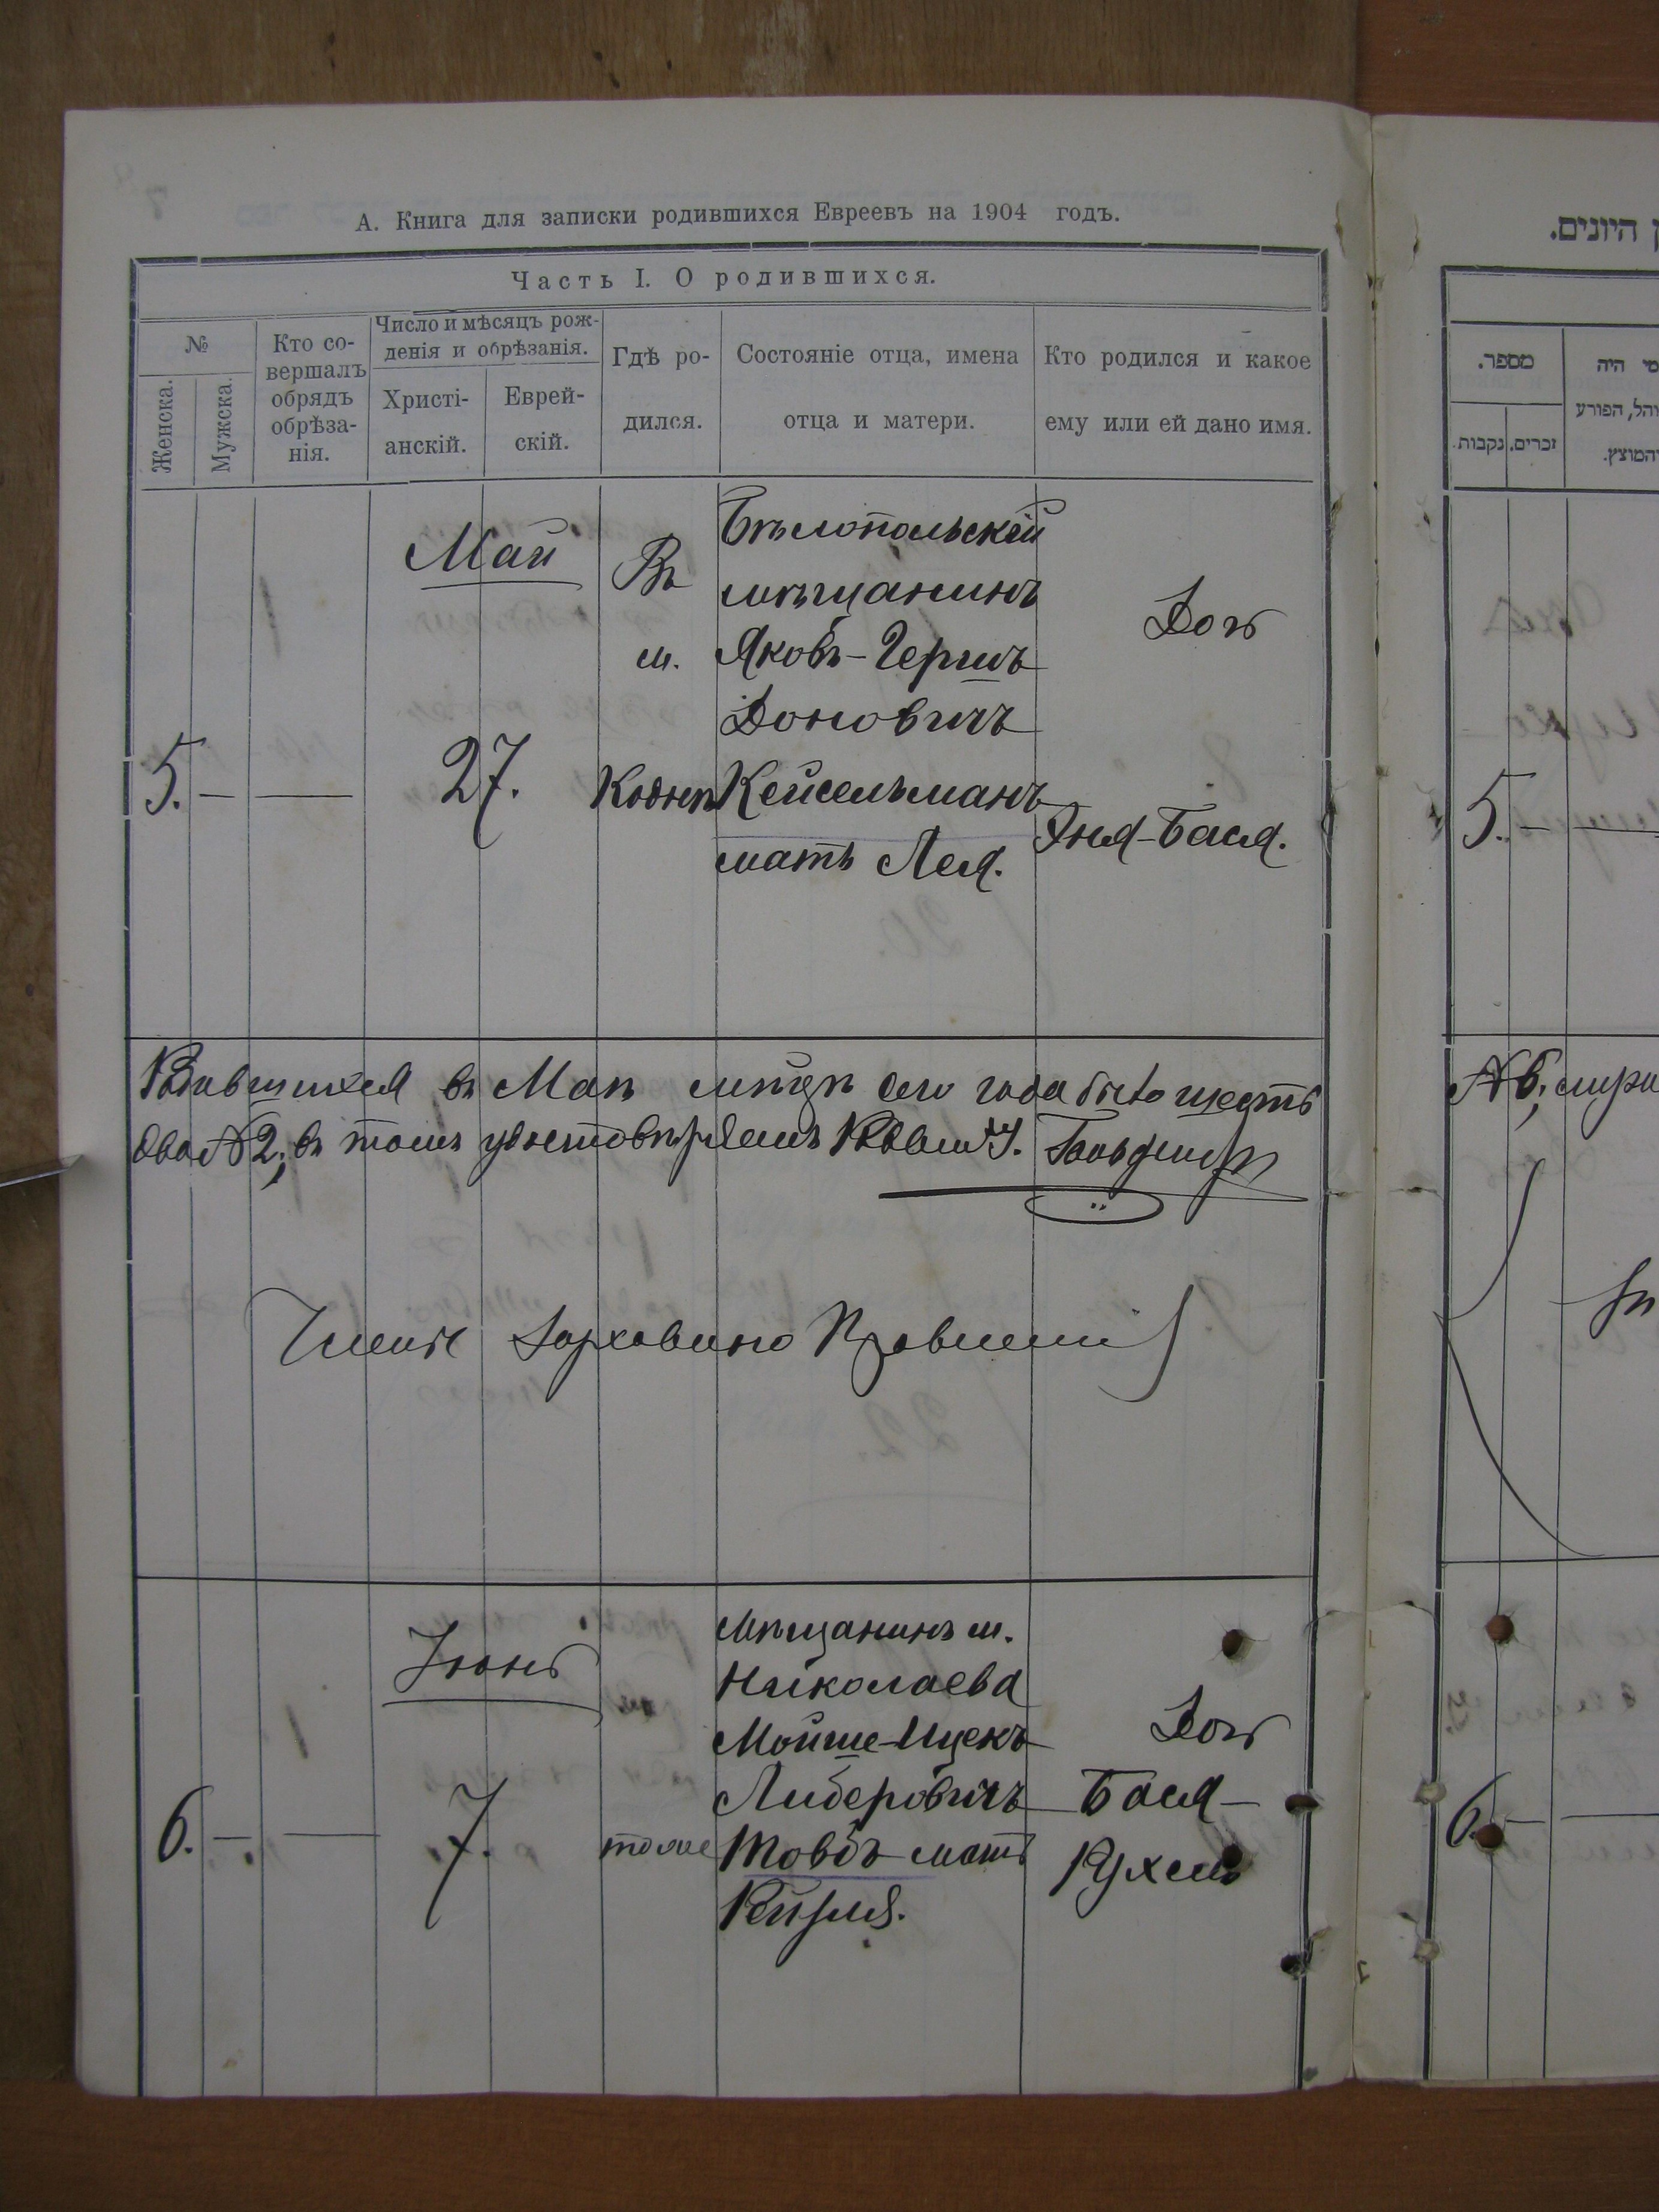 А. Книга для записки родившихся Евреевъ на 1904 годъ.
Часть I. О родившихся.
№
Женска.
Мужска.
Кто со-
вершалъ
обрядъ
обрѣза-
нія.
Число и мѣсяцъ рож-
денія и обрѣзанія.
Христі-
анскій.
Еврей-
скій.
Гдѣ ро-
дился.
Состояніе отца, имена
отца и матери.
Кто родился и какое
ему или ей дано имя.
5. — —
Май
27.
Въ
м.
Кодни
Бѣлопольскій
мѣщанинъ
Яковъ-Гершъ
Доновичъ
Кейсельманъ
мать Лея.
Доч
Эня-Бася.
Родившихся въ Маѣ сего года было шесть
два № 2; въ томъ удостовѣряемъ Раввинъ
6. — —
Іюнь
7.
тоже
Мѣщанинъ м.
Николаева
Мойше-Ицекъ
Либеровичъ
Товбъ мать
Рейзля.
Доч
Бася-
Рухель
היונים.
מספר.
זכרים, נקבות.
מי היה
והל, הפורע
והמוצץ.
5. —
№ 6;
6. —